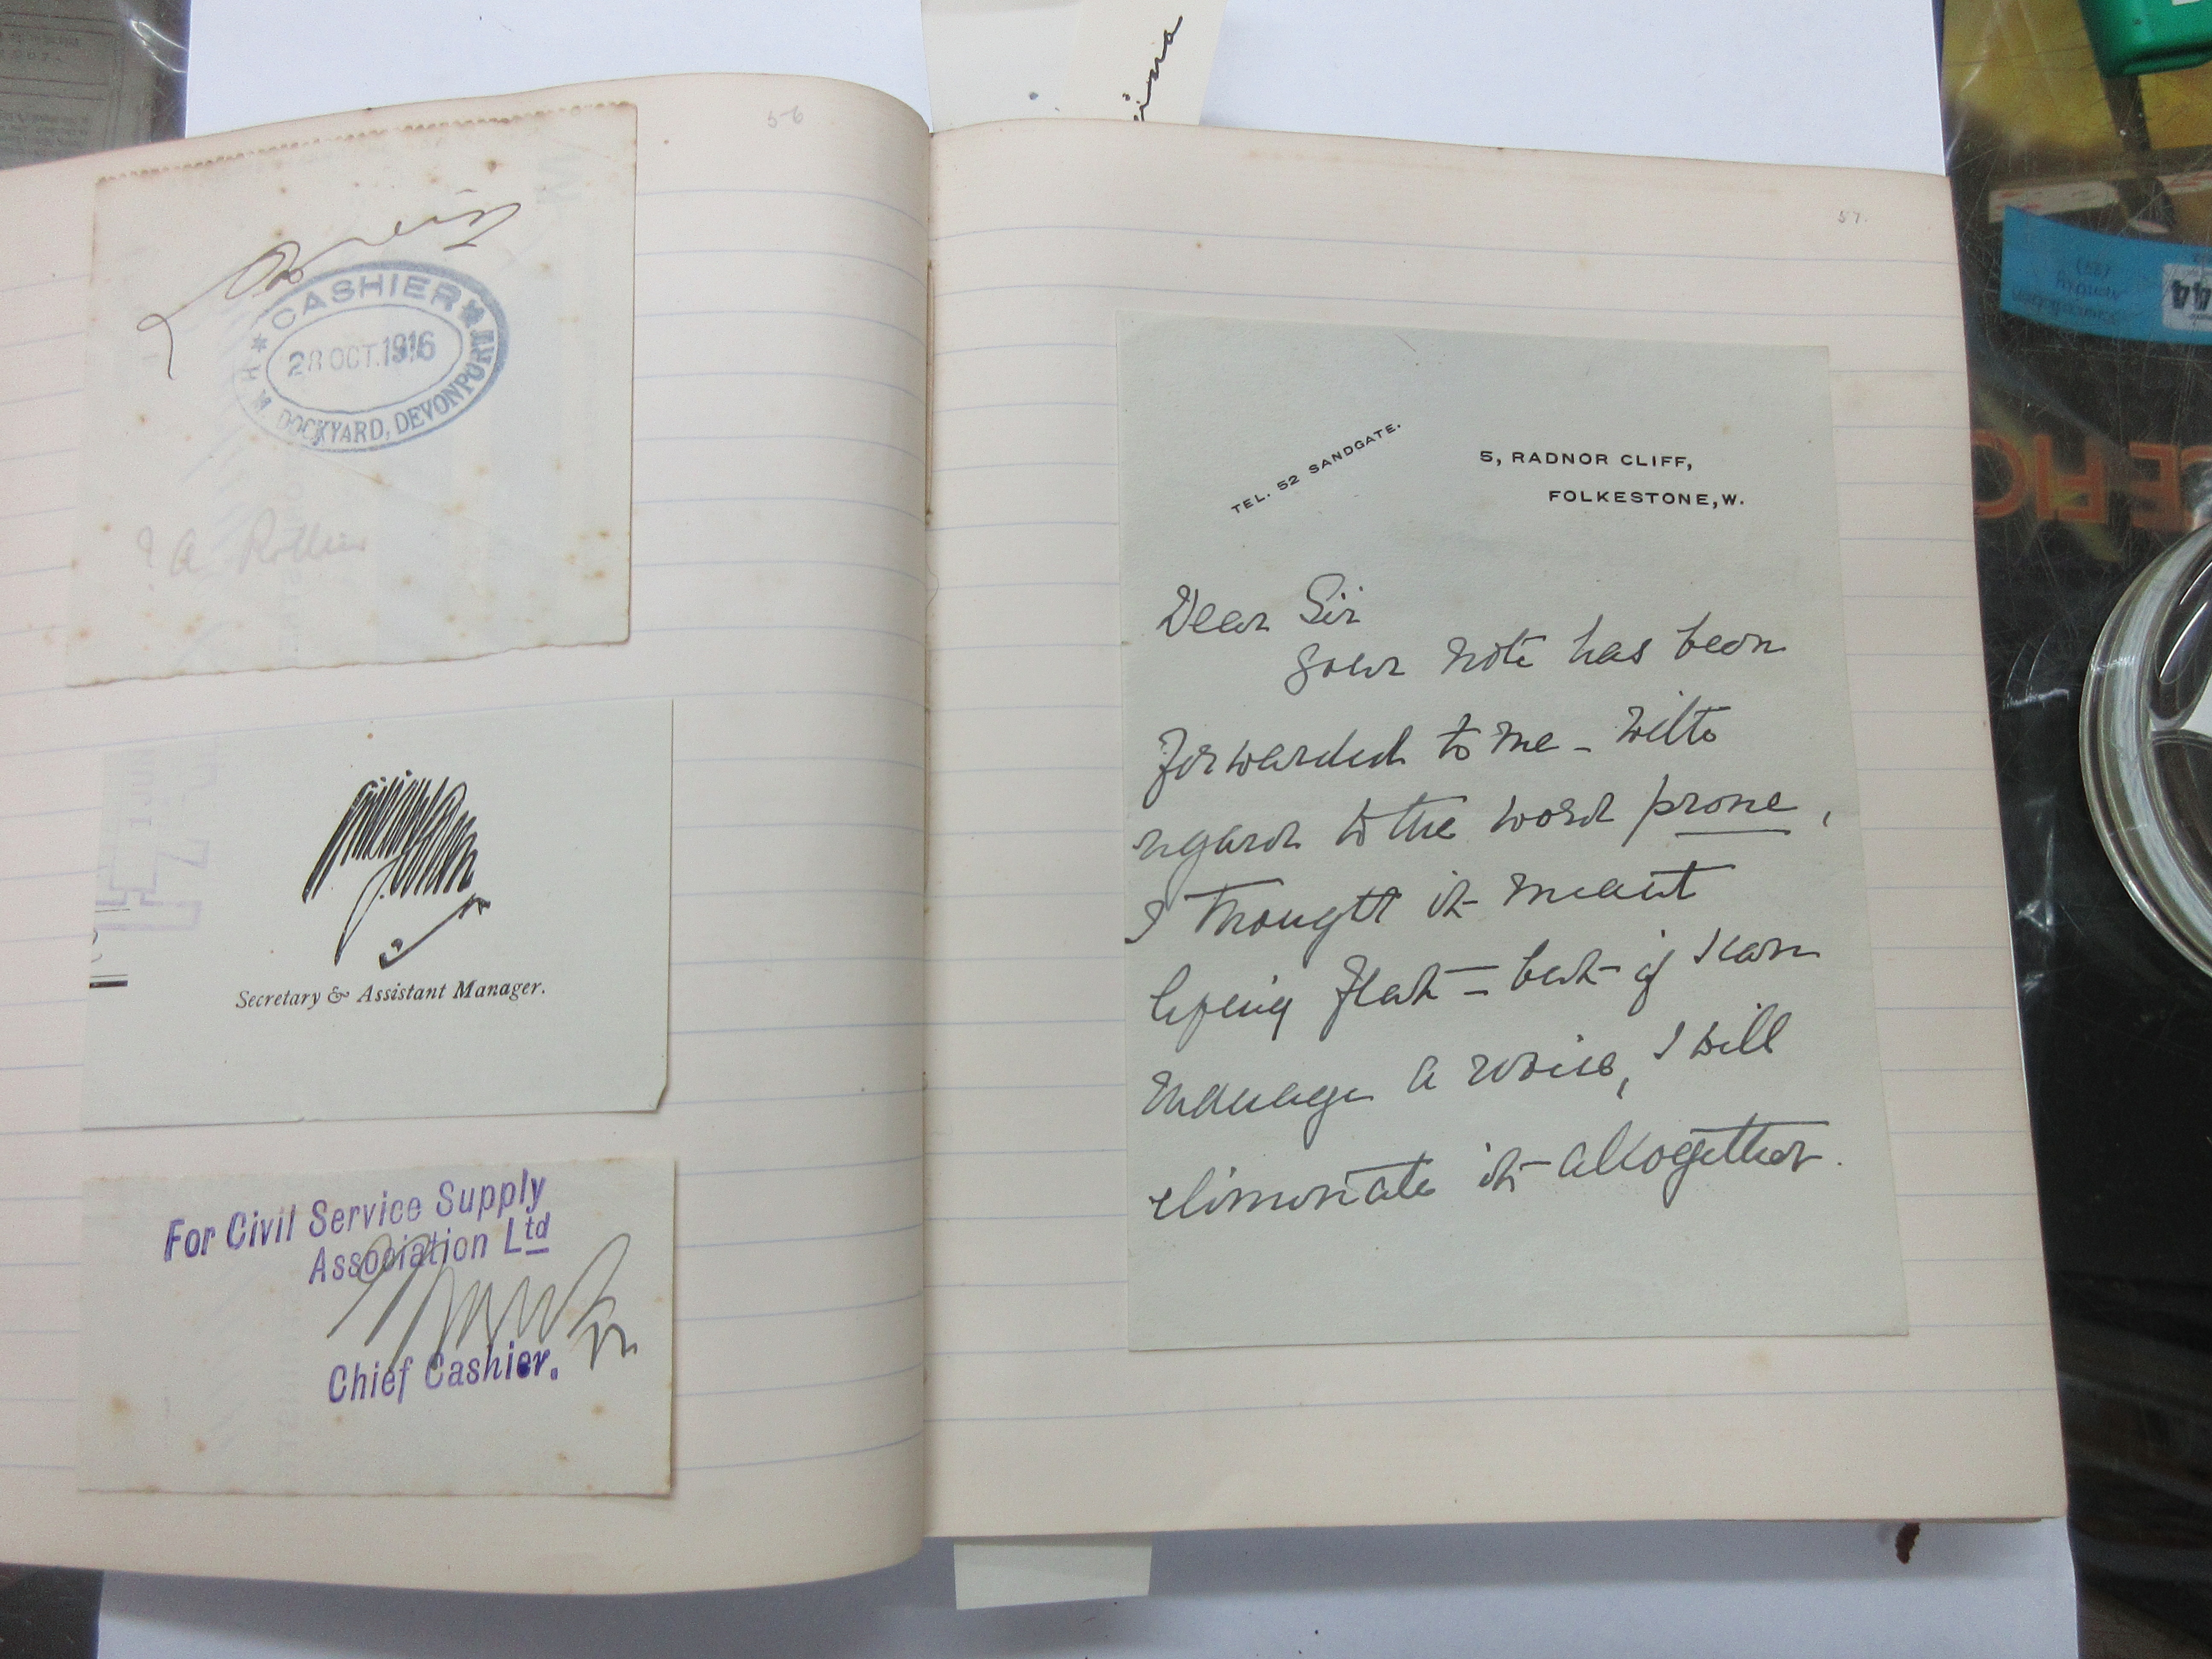 56
CASHIER
28 OCT.1916
H.M. DOCKYARD, DEVONPORT
? A Rollin
Secretary & Assistant Manager.
For Civil Service Supply
Association Ltd
Chief Cashier.
57.
TEL. 52 SANDGATE.
5, RADNOR CLIFF,
FOLKESTONE, W.
Dear Sir
your note has been
forwarded to me - with
regard to the word prone,
I thought it meant
lying flat - but if I can
manage a revise, I will
eliminate it altogether.
44